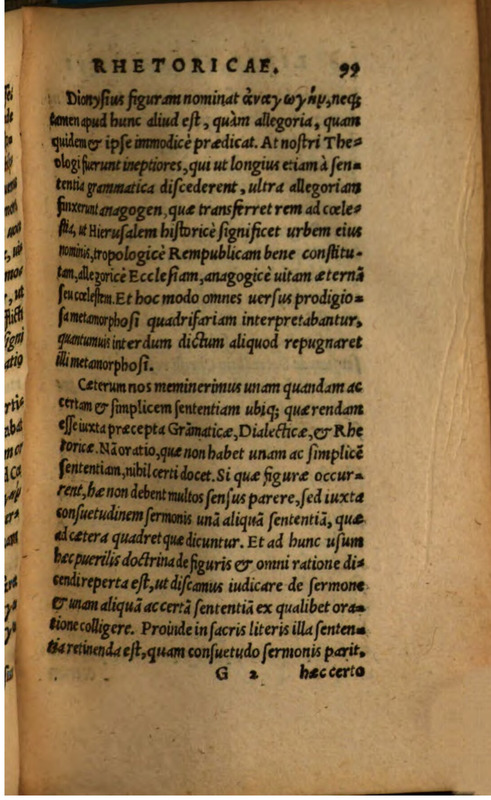 RHETORICAE. 99
Dionysius figuram nominat ἀναγωγὴν, neq;
tamen apud hunc aliud est, quàm allegoria, quam
quidem & ipse immodicè prædicat. At nostri Theo=
ologi fuerunt ineptiores, qui ut longius etiam à sen=
tentia grammatica discederent, ultra allegoriam
finxerunt anagogen, quæ transferret rem ad cœle=
stia, ut Hierusalem historicè significet urbem eius
nominis, tropologicè Rempublicam bene constitu=
tam, allegoricè Ecclesiam, anagogicè uitam æternã
seu cœlestem. Et hoc modo omnes uersus prodigio=
sa metamorphosi quadrifariam interpretabantur,
quantumuis interdum dictum aliquod repugnaret
illi metamorphosi.
Cæterum nos meminerimus unam quandam ac
certam & simplicem sententiam ubiq; quærendam
esse iuxta præcepta Grãmaticæ, Dialecticæ, & Rhe
toricæ. Nã oratio, quæ non habet unam ac simplicẽ
sententiam, nihil certi docet. Si quæ figuræ occur=
rent, hæ non debent multos sensus parere, sed iuxta
consuetudinem sermonis unã aliquã sententiã, quæ
ad cætera quadret quæ dicuntur. Et ad hunc usum
hæc puerilis doctrina de figuris & omni ratione di=
cendi reperta est, ut discamus iudicare de sermone
& unam aliquã ac certã sententiã ex qualibet ora=
tione colligere. Proinde in sacris literis illa senten=
tia retinenda est, quam consuetudo sermonis parit.
G 2 hæc certo